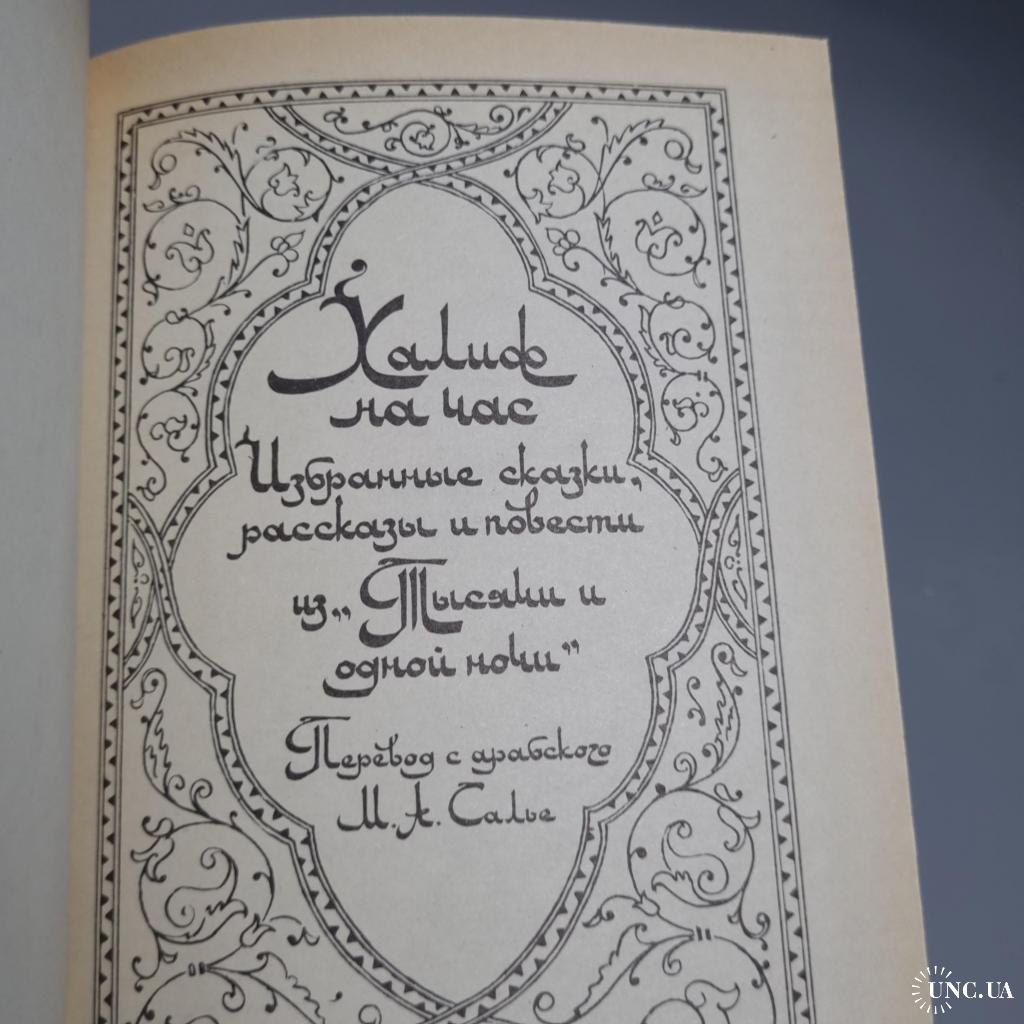 Халиф
на час
Избранные сказки,
рассказы и повести
из „Тысячи и
одной ночи”
Перевод с арабского
М. А. Салье
UNC.UA